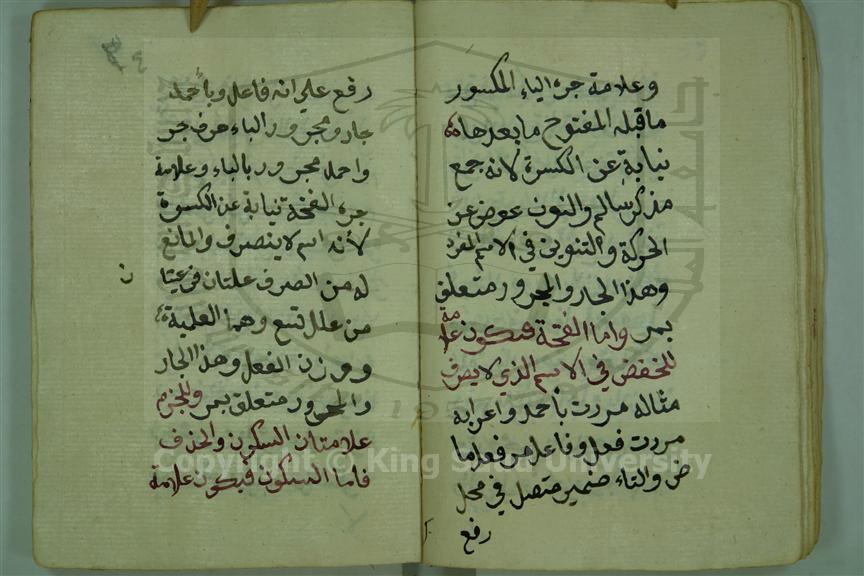 وعلامة جره الياء المكسور
ما قبله المفتوح ما بعدها
نيابة عن الكسرة لانه جمع
مذكر سالم والنون عوض عن
الحركة والتنوين في الاسم المفرد
وهذا الجار والمجرور متعلق
بمر واما الفتحة فيكون علامة
للخفض في الاسم الذي لا ينصرف
مثاله مررت بأحمد واعرابه
مررت فعل وفاعل مر فعل ما
ض والتاء ضمير متصل في محل
رفع
رفع علي انه فاعل وبأحمد
جار ومجرور الباء حرف جر
واحمد مجرور بالباء وعلامة
جره الفتحة نيابة عن الكسرة
لأنه اسم لا ينصرف والمانع
له من الصرف علتان فرعيتا
ن
من علل تسع وهما العلمية
ووزن الفعل وهذا الجار
والمجرور متعلق بمر وللجزم
علامتان السكون والحذف
فاما السكون فيكون علامة
Copyright © King Saud University
1957